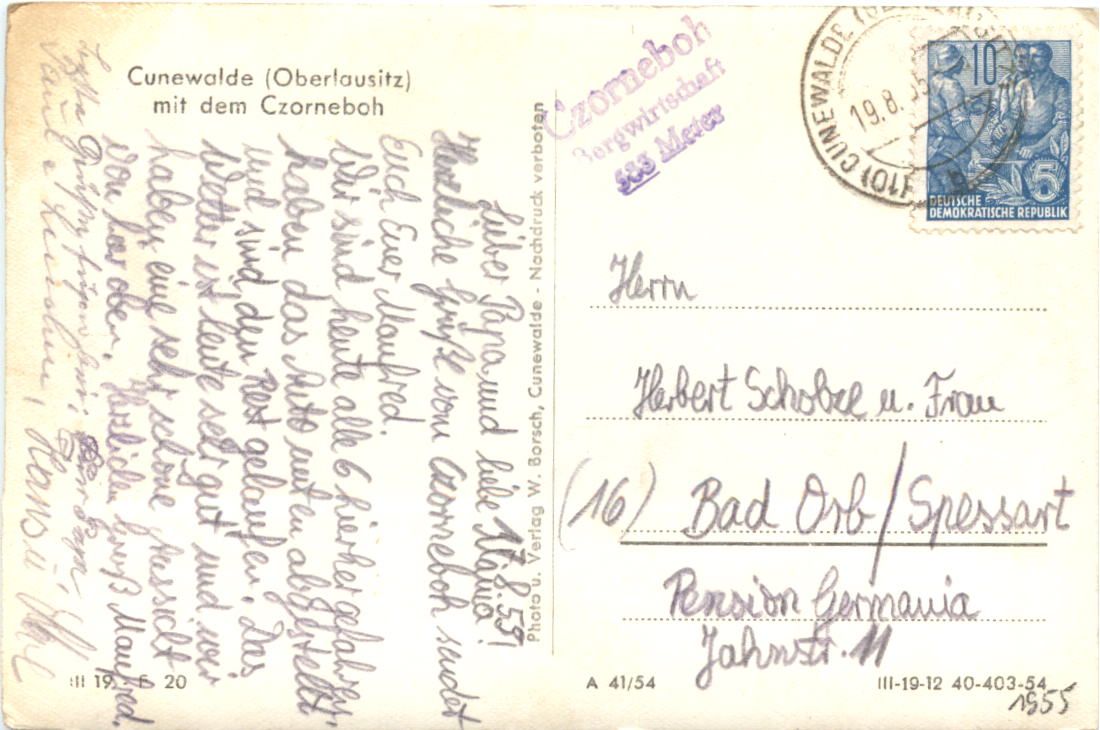 Cunewalde (Oberlausitz)
mit dem Czorneboh
17.8.55
Lieber Papa und liebe Mama!
Herzliche Grüße vom Czorneboh sendet
Euch Euer Manfred.
Wir sind heute alle 6 hierher gefahren,
haben das Auto unten abgestellt
und sind den Rest gelaufen. Das
Wetter ist heute sehr gut und wir
haben eine sehr schöne Aussicht
von hier oben. Herzlichen Gruß Manfred.
Hansu
Photo u. Verlag W. Borsch, Cunewalde - Nachdruck verboten
Czorneboh
Bergwirtschaft
Meter
(10) CUNEWALDE
19.8.55
10
5
DEUTSCHE
DEMOKRATISCHE REPUBLIK
Herrn
Herbert Scholze u. Frau
(16) Bad Orb/Spessart
Pension Germania
Jahnstr. 11
III 19 E 20
A 41/54
III-19-12 40-403-54
1955